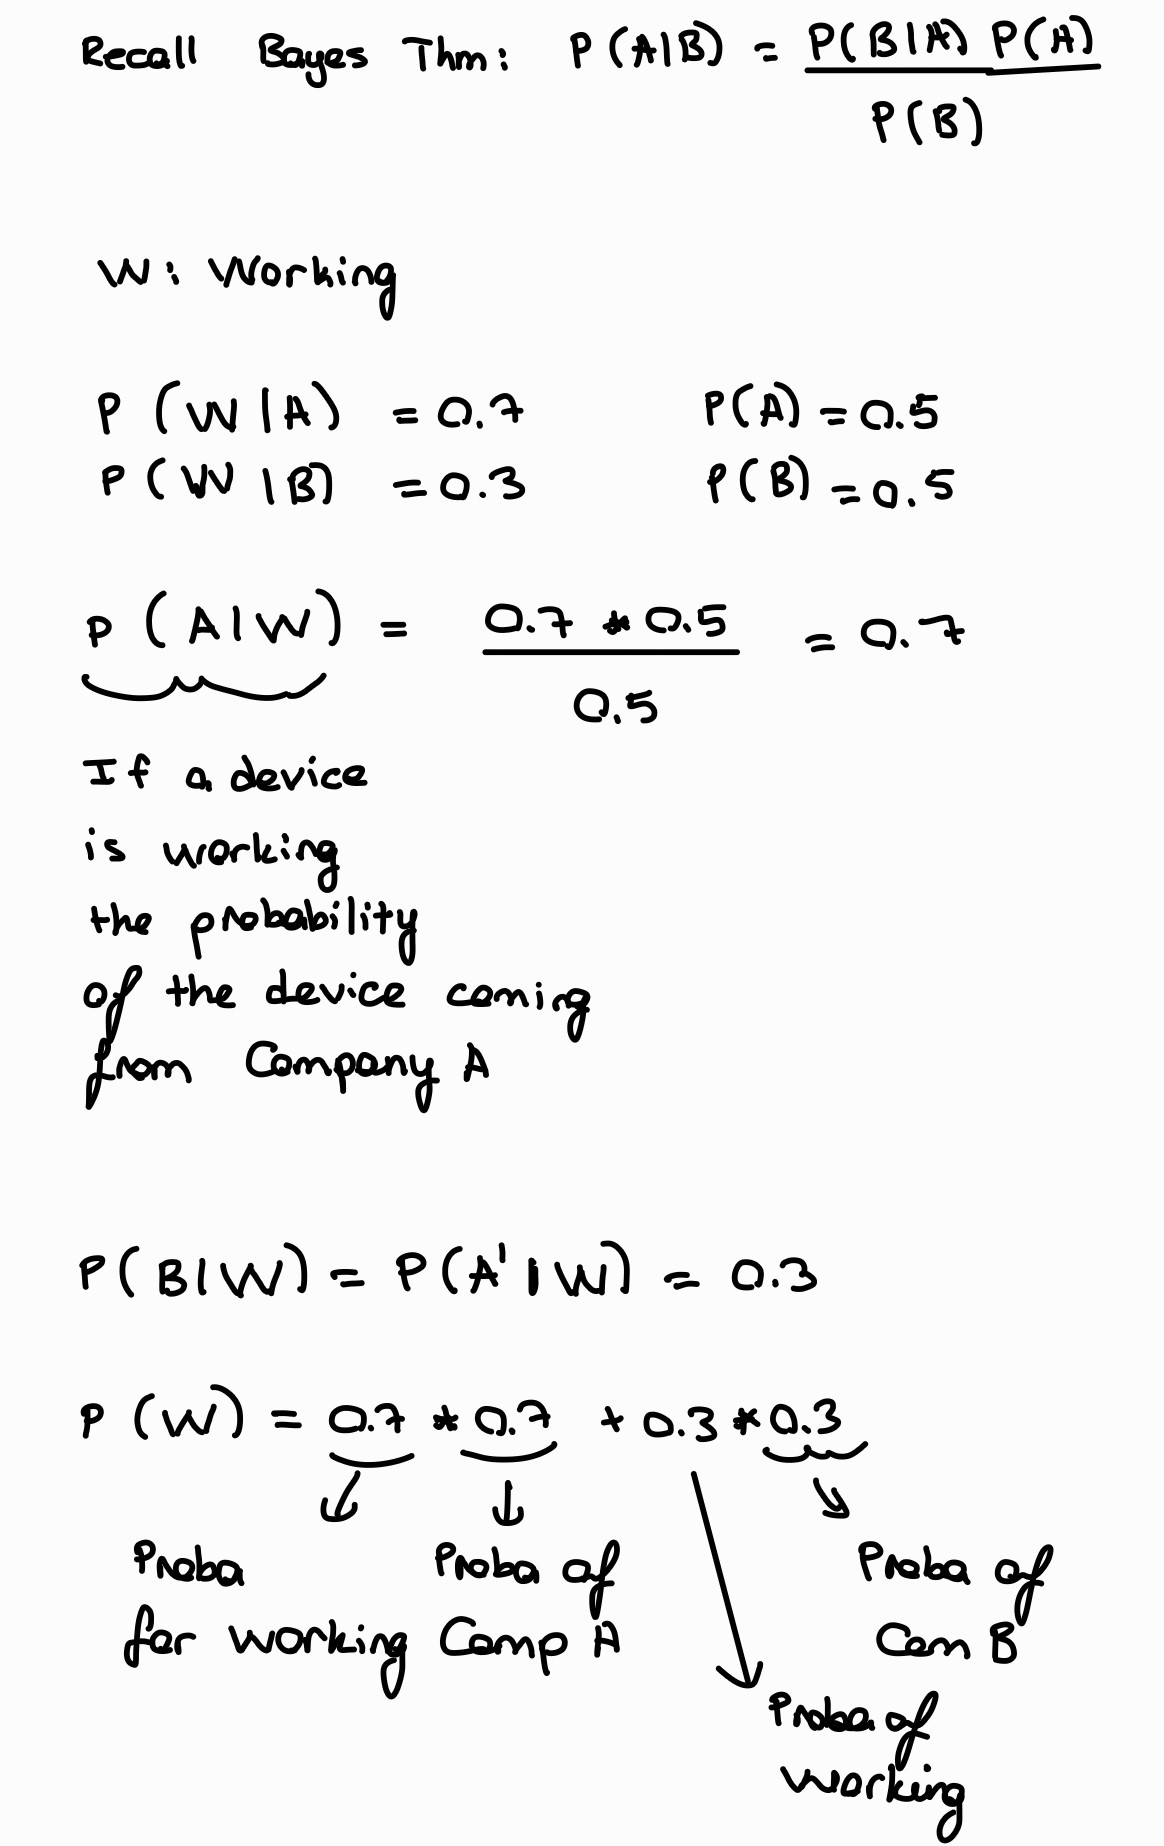 Recall Bayes Thm: P(A|B) = P(B|A) P(A)
P(B)
W: Working
P(W|A) = 0.7 P(A) = 0.5
P(W|B) = 0.3 P(B) = 0.5
P(A|W) = 0.7 * 0.5 = 0.7
0.5
If a device
is working
the probability
of the device coming
from Company A
P(B|W) = P(A'|W) = 0.3
P(W) = 0.7 * 0.7 + 0.3 * 0.3
Proba Proba of Proba of
for working Comp A Com B
Proba of
working